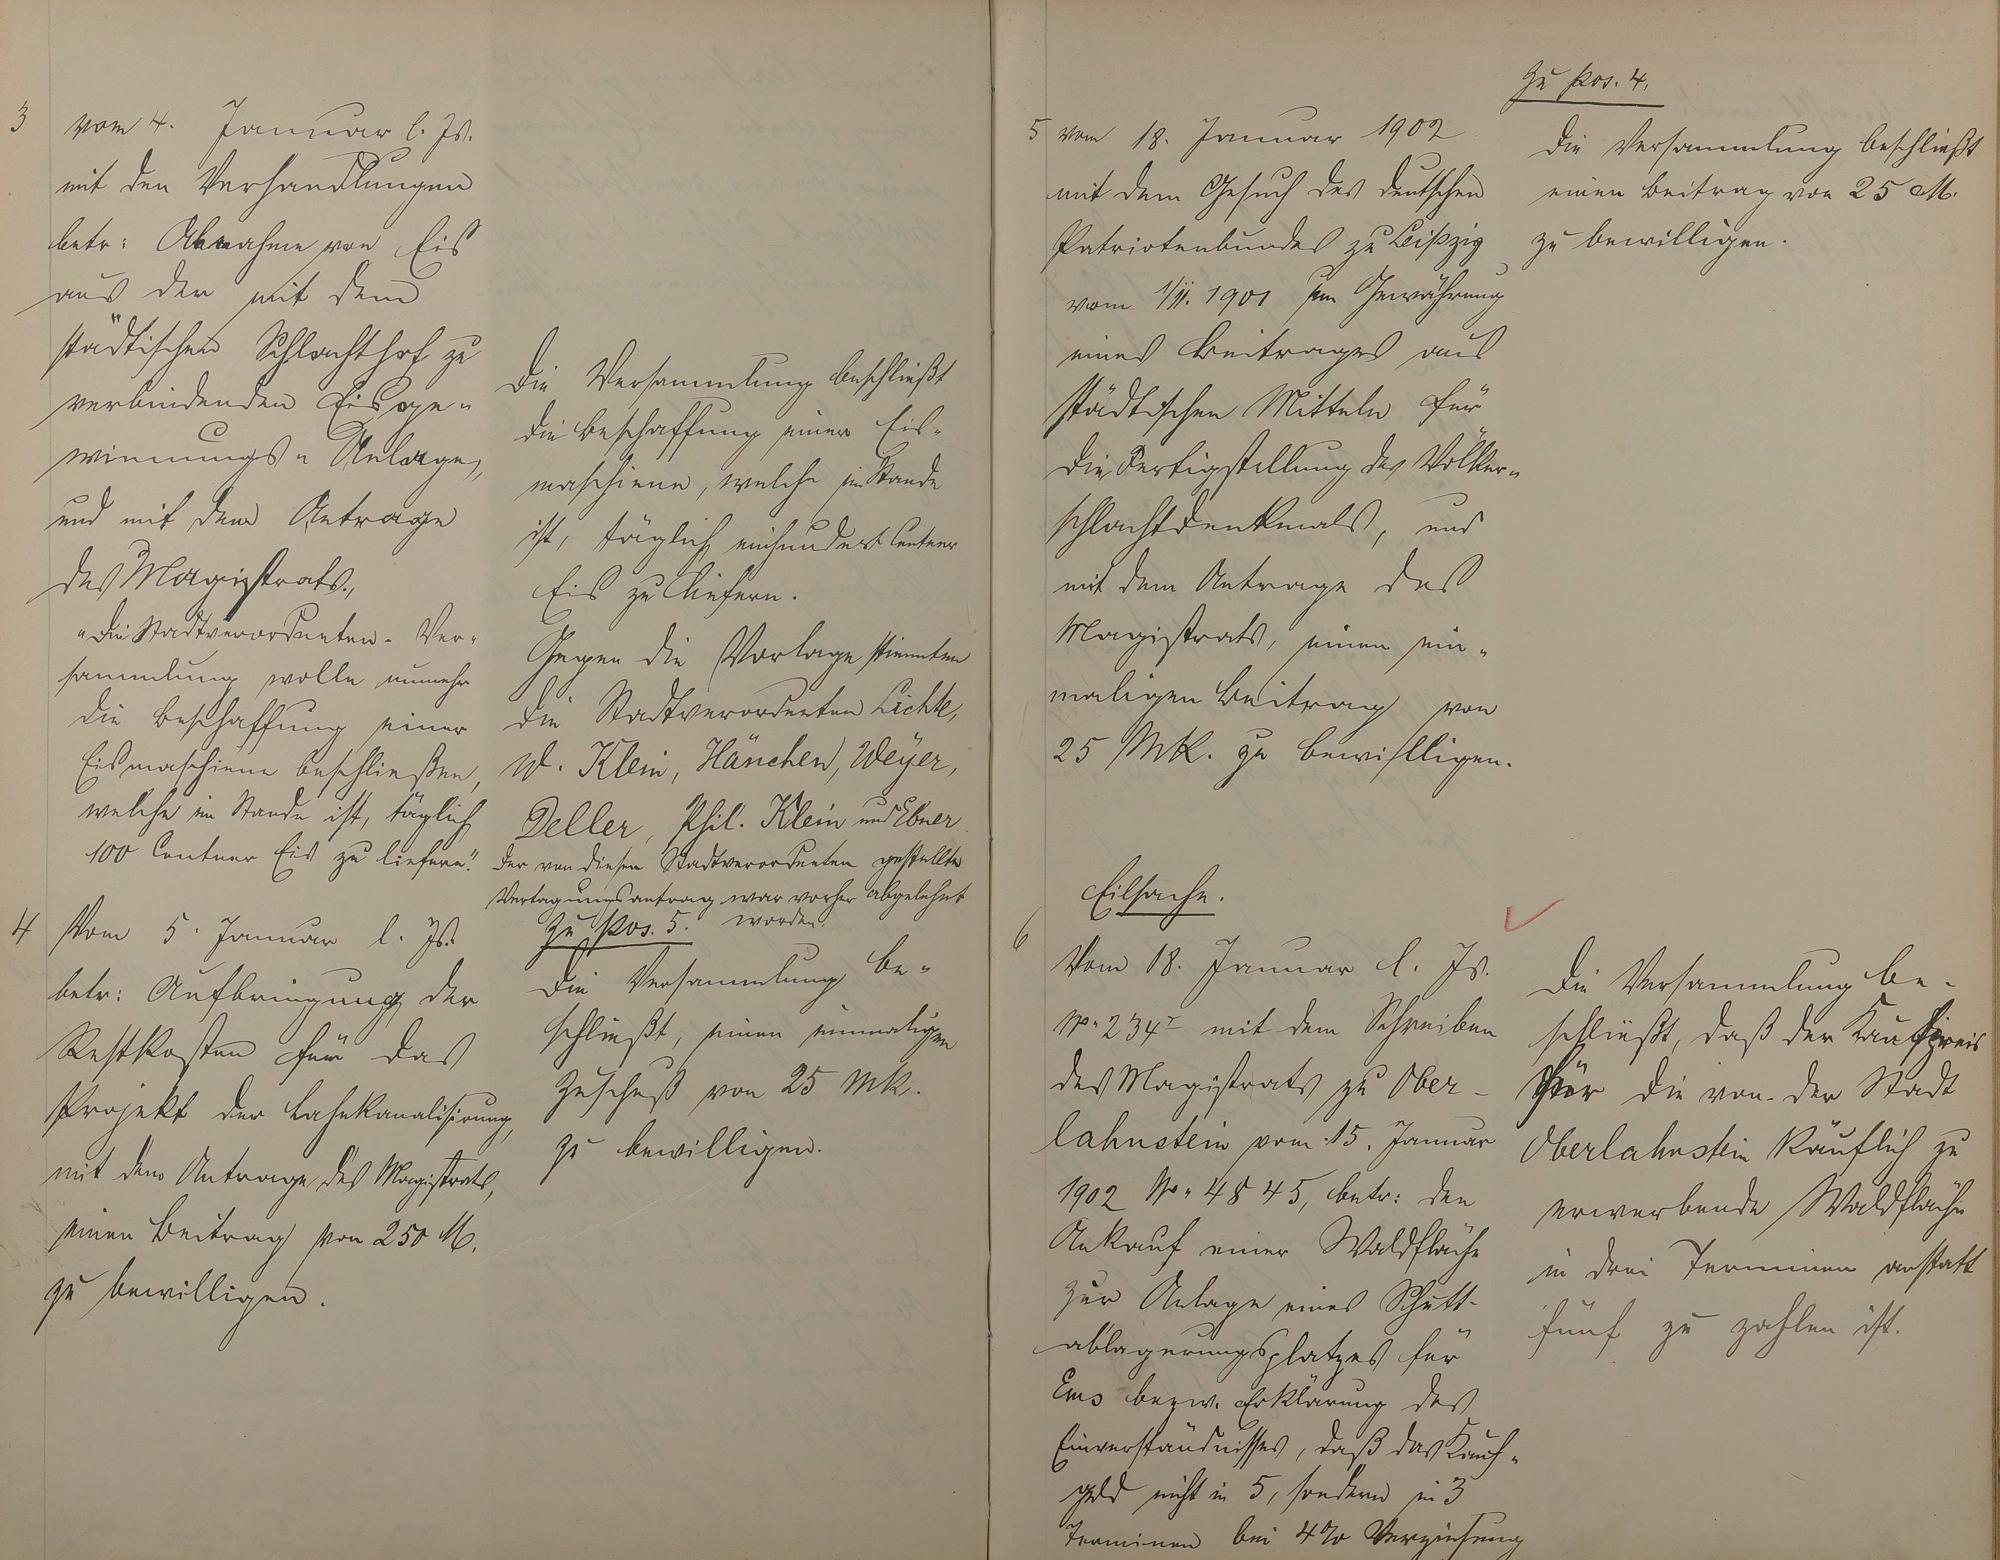 3 vom 4. Januar l. Js.
mit den Verhandlungen
betr: Abnahme von Eis
aus der mit dem
städtischen Schlachthof zu
verbindenden Eisge-
winnungs-Anlage,
und mit dem Antrage
des Magistrats,
"die Stadtverordneten-Ver-
sammlung wolle nunmehr
die Beschaffung einer
Eismaschiene beschließen,
welche im Stande ist, täglich
100 Centner Eis zu liefern."
4 Vom 5. Januar l. Js.
betr: Aufbringung der
Restkosten für das
Projekt der Lahnkanalisirung,
mit dem Antrage des Magistrats,
einen Beitrag von 250 M.
zu bewilligen.
Die Versammlung beschließt
die Beschaffung einer Eis-
maschiene, welche im Stande
ist, täglich einhundert Centner
Eis zu liefern.
Gegen die Vorlage stimmten
die Stadtverordneten Lichte,
W. Klein, Hänchen, Weyer,
Deller, Phil. Klein und Ebner
Der von diesen Stadtverordneten gestellte
Vertagungsantrag war vorher abgelehnt
worden.
Zu Pos. 5.
Die Versammlung be-
schließt, einen einmaligen
Zuschuß von 25 Mk.
zu bewilligen.
5 vom 18. Januar 1902
mit dem Gesuch des deutschen
Patriotenbundes zu Leipzig
vom 1/11. 1901 um Gewährung
eines Beitrages aus
städtischen Mitteln für
die Fertigstellung des Völker-
schlachtdenkmals, und
mit dem Antrage des
Magistrats, einen ein-
maligen Beitrag von
25 Mk. zu bewilligen.
Eilsache.
6 Vom 18. Januar l. Js.
No. 234 mit dem Schreiben
des Magistrats zu Ober-
lahnstein vom 15. Januar
1902 No. 4845, betr: den
Ankauf einer Waldfläche
zur Anlage eines Schutt-
ablagerungsplatzes für
Ems bezw. Erklärung des
Einverständnisses, daß das Kauf-
geld nicht in 5, sondern in 3
Terminen bei 4% Verzinsung
Zu Pos. 4.
Die Versammlung beschließt
einen Beitrag von 25 M.
zu bewilligen.
Die Versammlung be-
schließt, daß der Kaufpreis
für die von der Stadt
Oberlahnstein käuflich zu
erwerbende Waldfläche
in drei Terminen anstatt
fünf zu zahlen ist.